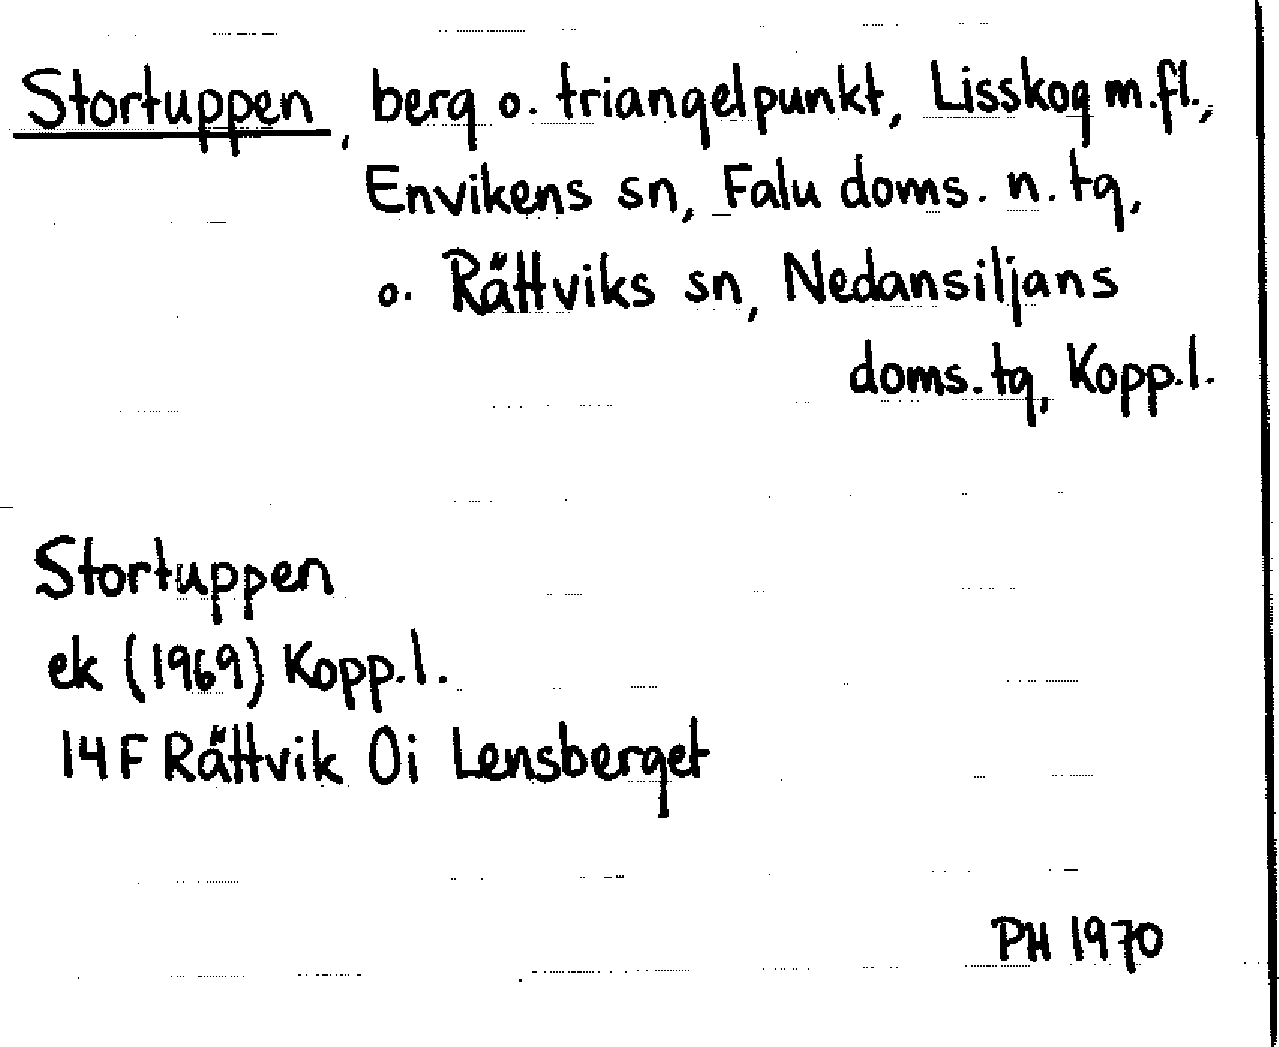 Stortuppen, berg o. triangelpunkt, Lisskog m.fl.,
Envikens sn, Falu doms. n. tg,
o. Rättviks sn, Nedansiljans
doms. tg, Kopp. l.
Stortuppen
ek (1969) Kopp. l.
14 F Rättvik 0i Lensberget
PH 1970